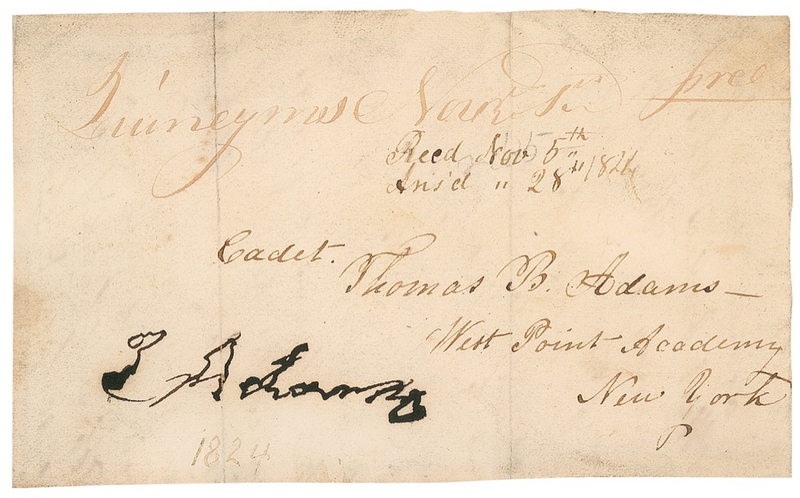 Quincy mas Nov 1st free
Recd Nov 5th
Ans'd " 28th 1824
Cadet.
Thomas B. Adams—
West Point Academy
New York
J Adams
1824